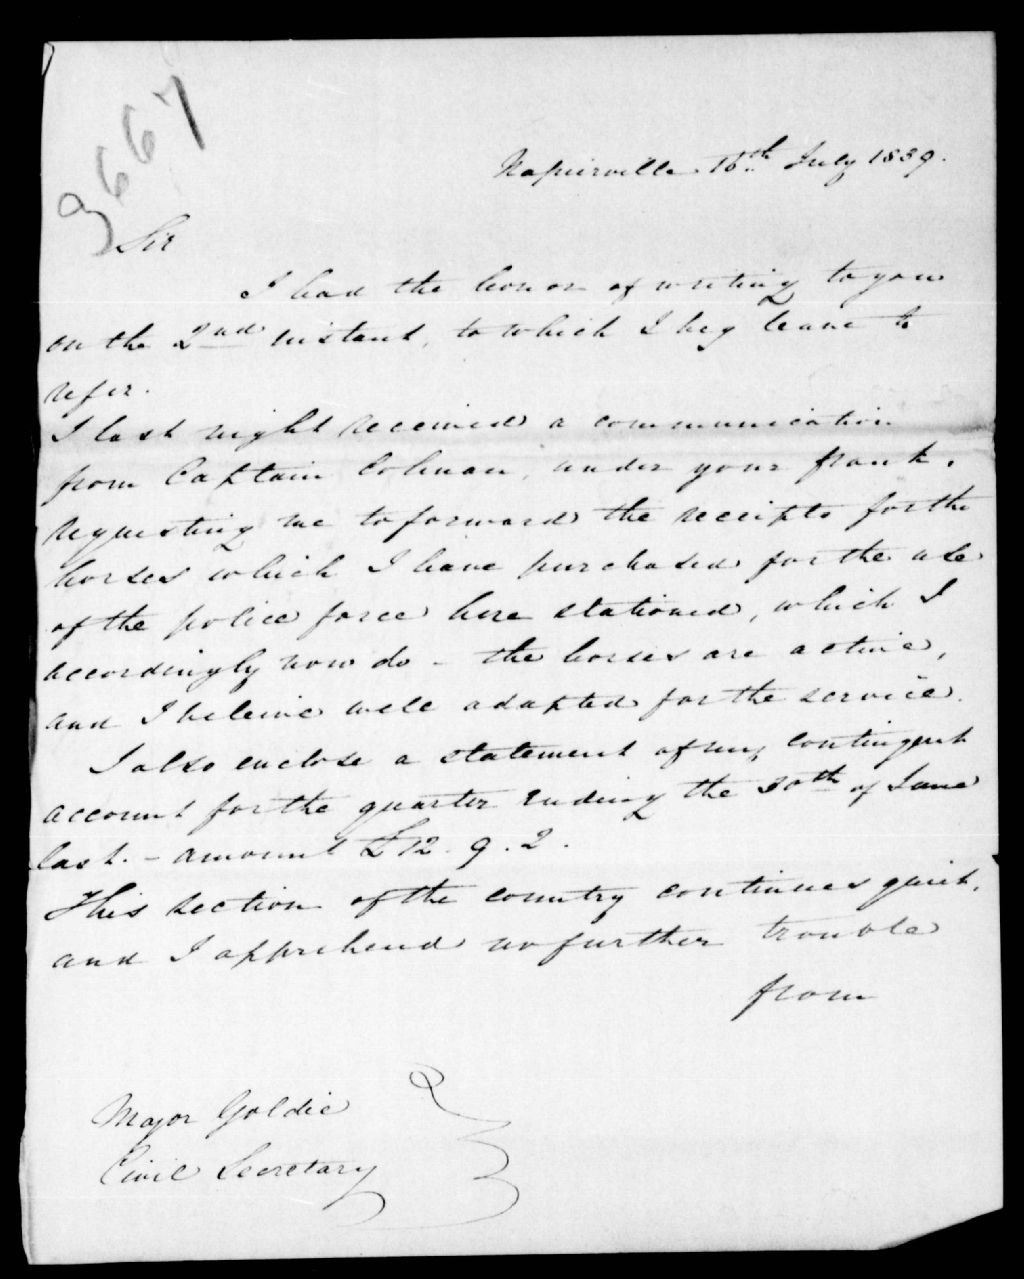 3667
Napierville 16th July 1839.
Sir
I had the honor of writing to you
on the 2nd instant, to which I beg leave to
refer.
I last night received a communication
from Captain Colman, under your frank,
requesting me to forward the receipts for the
horses which I have purchased for the use
of the police force here stationed, which I
accordingly now do - the horses are active,
and I beleive well adapted for the service.
I also enclose a statement of my contingent
account for the quarter ending the 30th of June
last. - amount £12.9.2.
This section of the country continues quiet,
and I apprehend no further trouble
from
Major Goldie
Civil Secretary